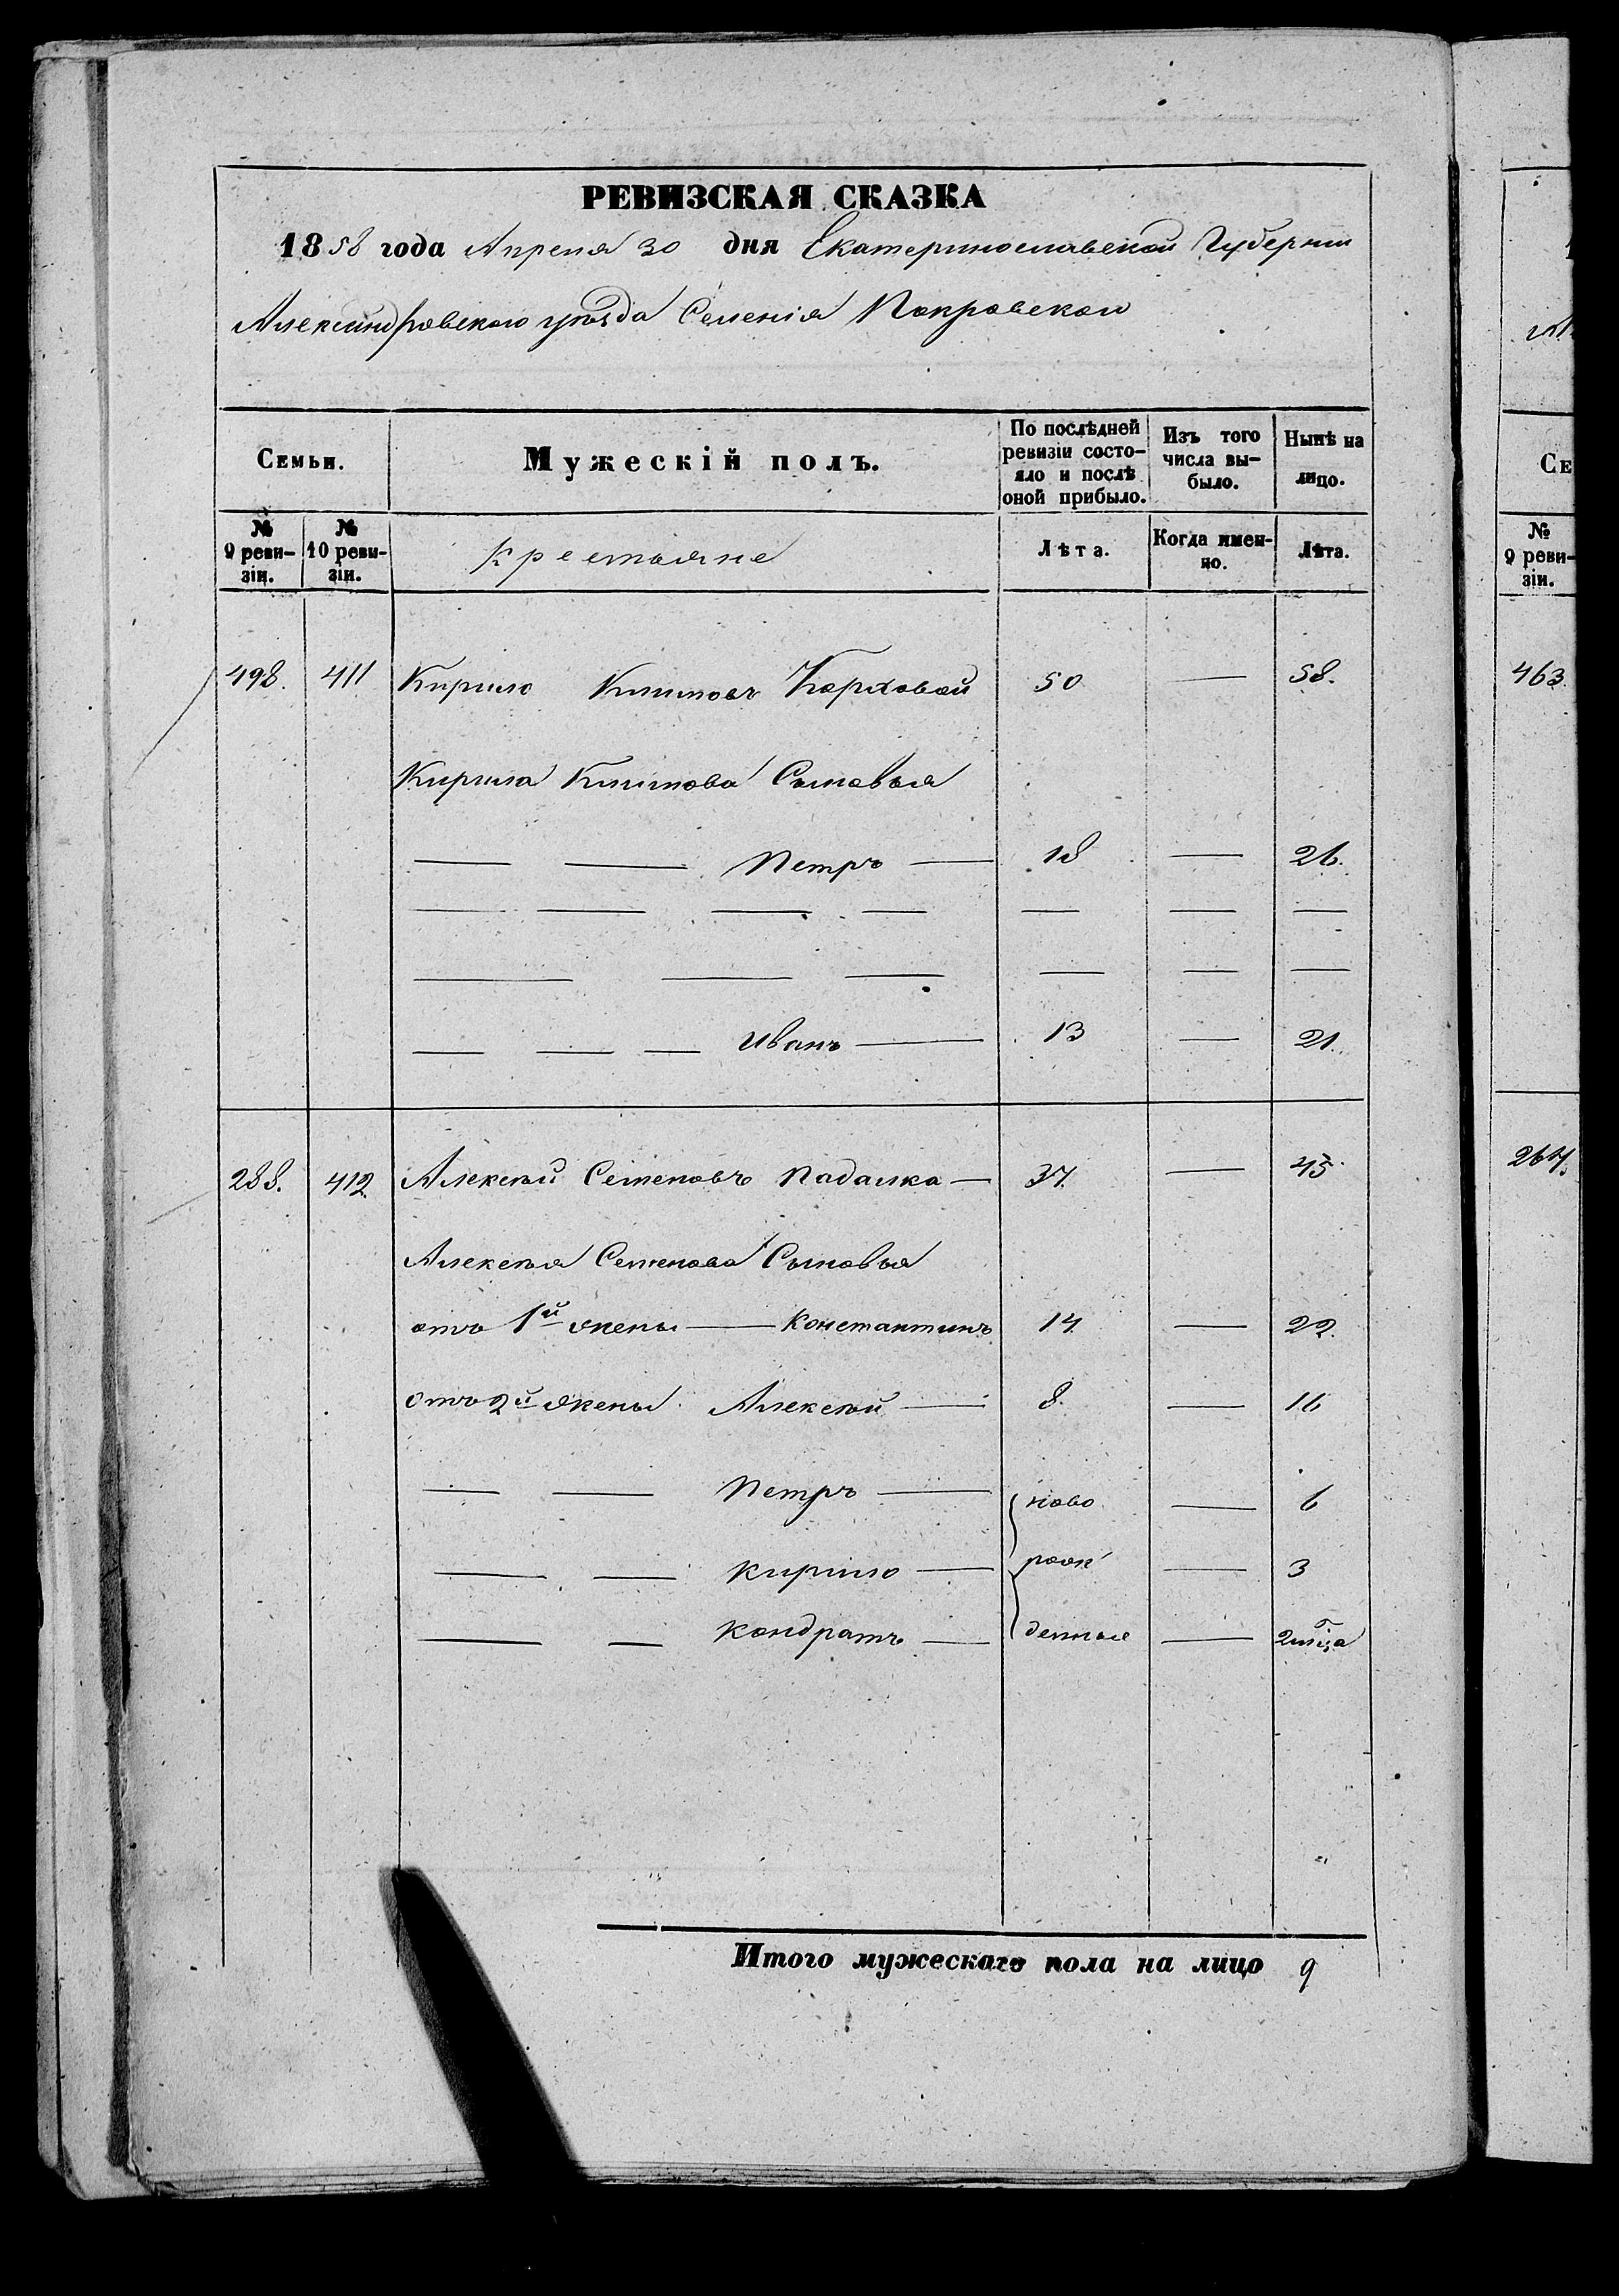 РЕВИЗСКАЯ СКАЗКА
1858 года Апреля 30 дня Екатеринославской Губернии
Александровского уѣзда Селенія Покровского
Семьи. Мужескій полъ. По послѣдней ревизіи состояло и послѣ оной прибыло. Изъ того числа выбыло. Нынѣ на лицо.
№ 9 ревизіи. № 10 ревизіи. Крестьяне Лѣта. Когда именно. Лѣта.
498. 411 Кирило Климовъ Корховой 50 — 58.
Кирила Климова Сыновья
— — Петръ — 18 — 26.
— — — — — — —
— — — — — —
— — — Иванъ — 13 — 21.
288. 412. Алексѣй Семеновъ Падалка — 37. — 45.
Алексѣя Семенова Сыновья
отъ 1й жены — Константинъ 14. — 22.
отъ 2й жены Алексѣй — 8. — 16
— — Петръ — ново — 6
— — Кирило — рож — 3
— — Кондратъ — денные — 2 мѣсца
Итого мужескаго пола на лицо 9
Се
№ 9 реви-
зіи.
463.
264.